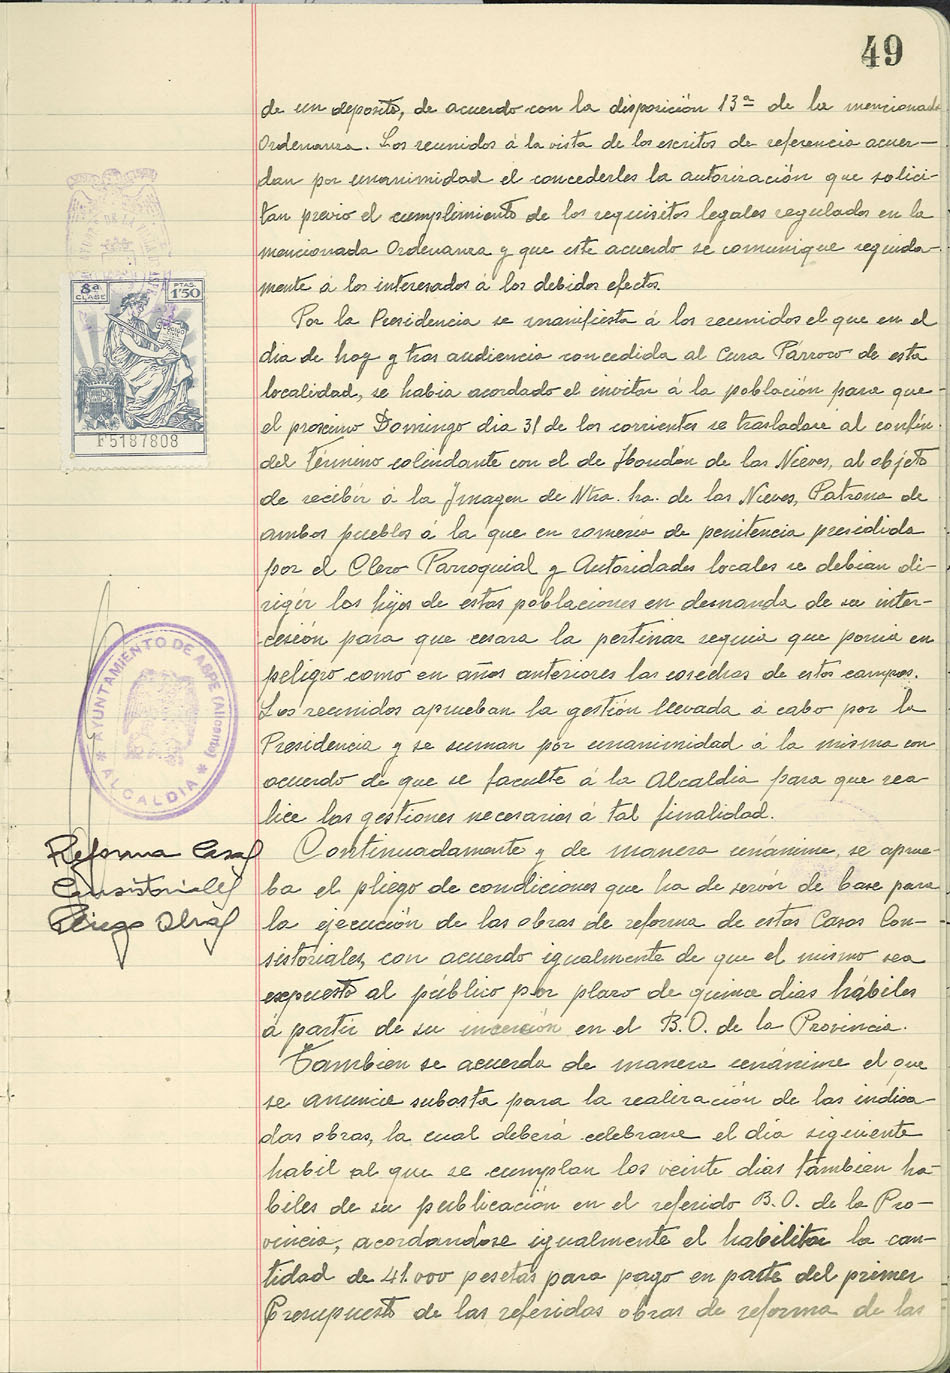 49
de un deposito, de acuerdo con la disposición 13ª de la mencionada
Ordenanza. Los reunidos á la vista de los escritos de referencia acuer-
dan por unanimidad el concederles la autorización que solici-
tan previo el cumplimiento de los requisitos legales regulados en la
mencionada Ordenanza y que este acuerdo se comunique seguida-
mente á los interesados á los debidos efectos.
Por la Presidencia se manifiesta á los reunidos el que en el
dia de hoy y tras audiencia concedida al Cura Párroco de esta
localidad, se habia acordado el invitar á la población para que
el proximo Domingo dia 31 de los corrientes se trasladase al confin
del Término colindante con el de Hondón de las Nieves, al objeto
de recibir á la Imagen de Ntra. Sra. de las Nieves, Patrona de
ambos pueblos á la que en romeria de penitencia presidida
por el Clero Parroquial y Autoridades locales se debian di-
rigir los hijos de estas poblaciones en demanda de su inter-
cesión para que cesara la pertinaz sequia que ponia en
peligro como en años anteriores las cosechas de estos campos.
Los reunidos aprueban la gestión llevada á cabo por la
Presidencia y se suman por unanimidad á la misma con
acuerdo de que se faculte á la Alcaldia para que rea-
lice las gestiones necesarias á tal finalidad.
Continuadamente y de manera unánime, se aprue-
ba el pliego de condiciones que ha de servir de base para
la ejecución de las obras de reforma de estas Casas Con-
sistoriales, con acuerdo igualmente de que el mismo sea
expuesto al público por plazo de quince dias hábiles
á partir de su incersión en el B.O. de la Provincia.
Tambien se acuerda de manera unánime el que
se anuncie subasta para la realización de las indica-
das obras, la cual deberá celebrarse el dia siguiente
habil al que se cumplan los veinte dias tambien ha-
biles de su publicación en el referido B.O. de la Pro-
vincia, acordandose igualmente el habilitar la can-
tidad de 41.000 pesetas para pago en parte del primer
Presupuesto de las referidas obras de reforma de las
8ª CLASE
PTAS. 1'50
F5187808
AYUNTAMIENTO DE ASPE (Alicante)
* ALCALDIA *
Reforma Casas
Consistoriales
Pliego Obras